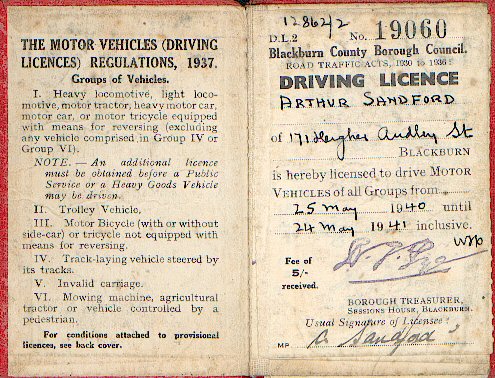 THE MOTOR VEHICLES (DRIVING
LICENCES) REGULATIONS, 1937.
Groups of Vehicles.
I. Heavy locomotive, light loco-
motive, motor tractor, heavy motor car,
motor car, or motor tricycle equipped
with means for reversing (excluding
any vehicle comprised in Group IV or
Group VI).
NOTE.—An additional licence
must be obtained before a Public
Service or a Heavy Goods Vehicle
may be driven.
II. Trolley Vehicle,
III. Motor Bicycle (with or without
side-car) or tricycle not equipped with
means for reversing.
IV. Track-laying vehicle steered by
its tracks.
V. Invalid carriage.
VI. Mowing machine, agricultural
tractor or vehicle controlled by a
pedestrian.
For conditions attached to provisional
licences, see back cover.
D.L.2 No. 19060
Blackburn County Borough Council.
ROAD TRAFFIC ACTS, 1930 to 1936.
DRIVING LICENCE
ARTHUR SANDFORD
of 171 Higher Audley St
BLACKBURN
is hereby licensed to drive MOTOR
VEHICLES of all Groups from
25 May 1940 until
24 May 1941 inclusive.
Fee of
5/-
received.
BOROUGH TREASURER,
SESSIONS HOUSE, BLACKBURN.
Usual Signature of Licensee
MP A Sandford